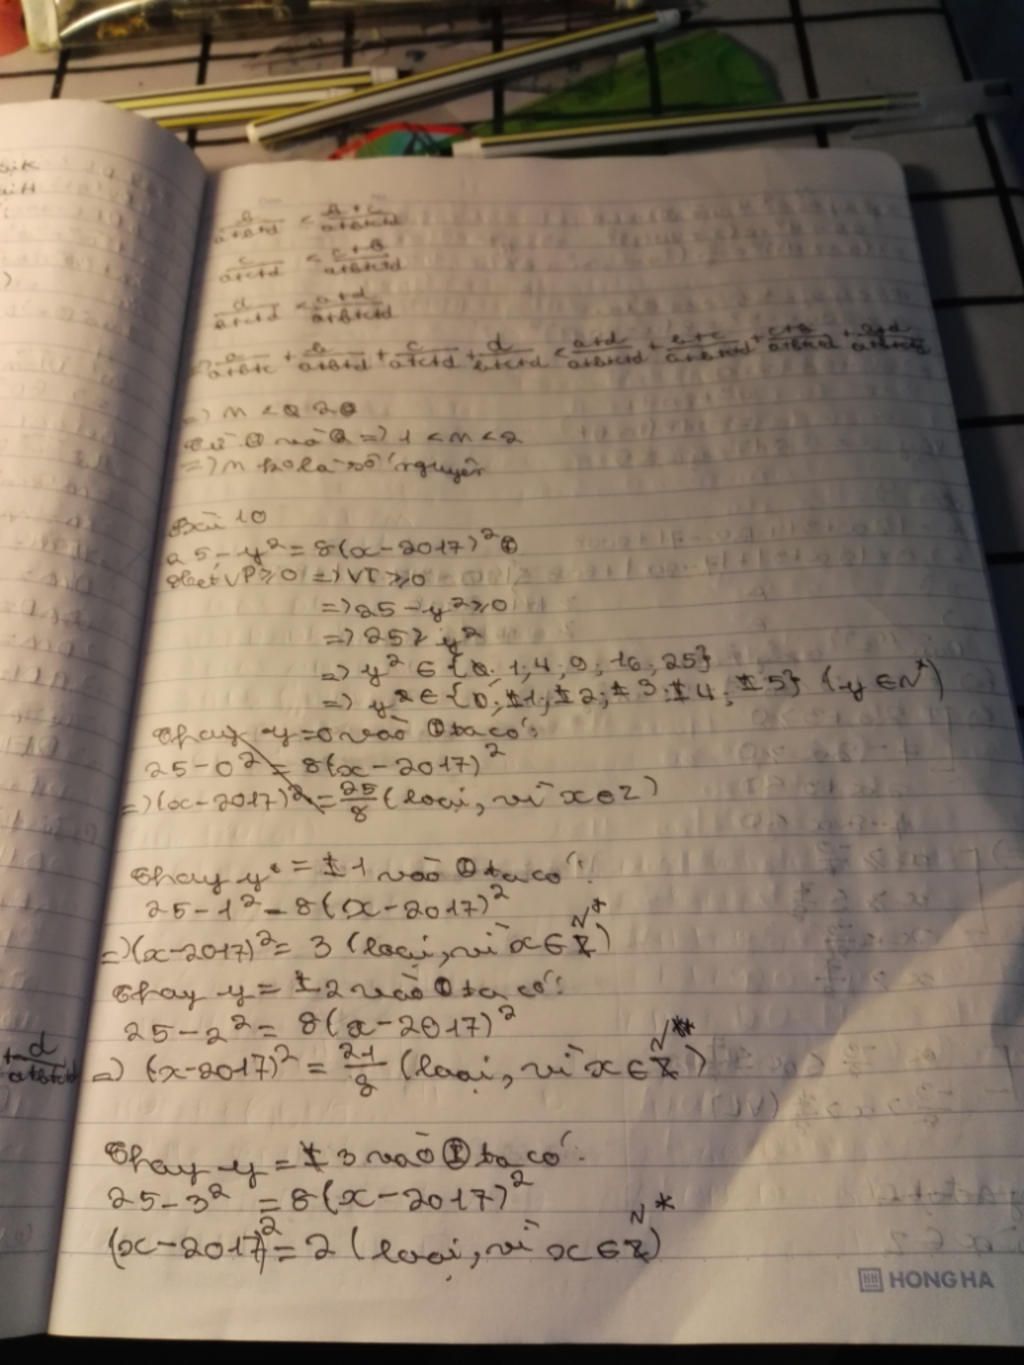 b/(a+b+d) < (b+c)/(a+b+c+d)
c/(a+c+d) < (c+b)/(a+b+c+d)
d/(a+c+d) < (a+d)/(a+b+c+d)
a/(a+b+c) + b/(a+b+d) + c/(a+c+d) + d/(b+c+d) < (a+d)/(a+b+c+d) + (b+c)/(a+b+c+d) + (c+b)/(a+b+c+d) + (a+d)/(a+b+c+d)
=> M < 2 ②
Từ ① và ② => 1 < M < 2
=> M ko là số nguyên
Bài 10
25 - y² = 8(x - 2017)² ①
VP ≥ 0 => VT ≥ 0
=> 25 - y² ≥ 0
=> 25 ≥ y²
=> y² ∈ {0; 1; 4; 9; 16; 25}
=> y ∈ {0; ±1; ±2; ±3; ±4; ±5} (y ∈ N*)
Thay y = 0 vào ① ta có:
25 - 0² = 8(x - 2017)²
=> (x - 2017)² = 25/8 (loại, vì x ∈ Z)
Thay y = ±1 vào ① ta có:
25 - 1² = 8(x - 2017)²
=> (x - 2017)² = 3 (loại, vì x ∈ N*)
Thay y = ±2 vào ① ta có:
25 - 2² = 8(x - 2017)²
=> (x - 2017)² = 21/8 (loại, vì x ∈ N*)
+ d/(a+b+c+d)
Thay y = ±3 vào ① ta có:
25 - 3² = 8(x - 2017)²
(x - 2017)² = 2 (loại, vì x ∈ N*)
HONG HA